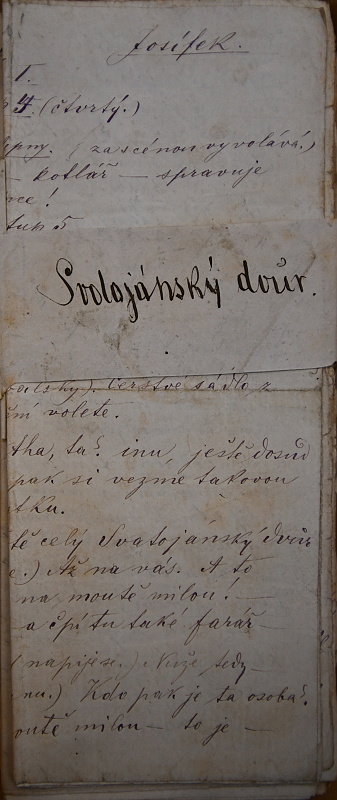 Josífek.
I.
4. (čtvrtý.)
(za scénou vyvolává.)
— kotlář — spravuje
nce!
tuh 5
Svatojánský dvůr.
Čerstvé sádlo z
volete.
tha, ta? inu, ještě dosud
pak si vezme takovou
tku.
tě celý Svatojánský dvůr
e.) Až na vás. A to
na moutě milou! —
a čpí tu také farář —
(napije se.) Nuže tedy —
nu.) Kdo pak je ta osoba?
outě milou — to je —